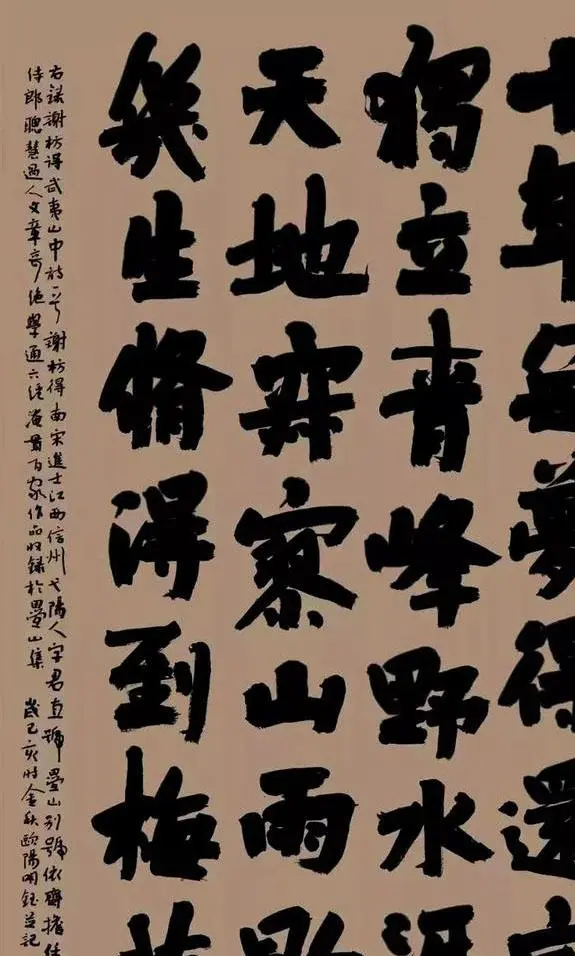 十年每夢得還家
獨立青峰野水涯
天地寂寥山雨歇
幾生脩得到梅花
右錄謝枋得武夷山中詩一首 謝枋得南宋進士江西信州弋陽人字君直號疊山別號依齋擔任
侍郎聰慧過人文章奇絕學通六經淹貫百家作品收錄於疊山集 歲己亥時金秋歐陽明鈺並記